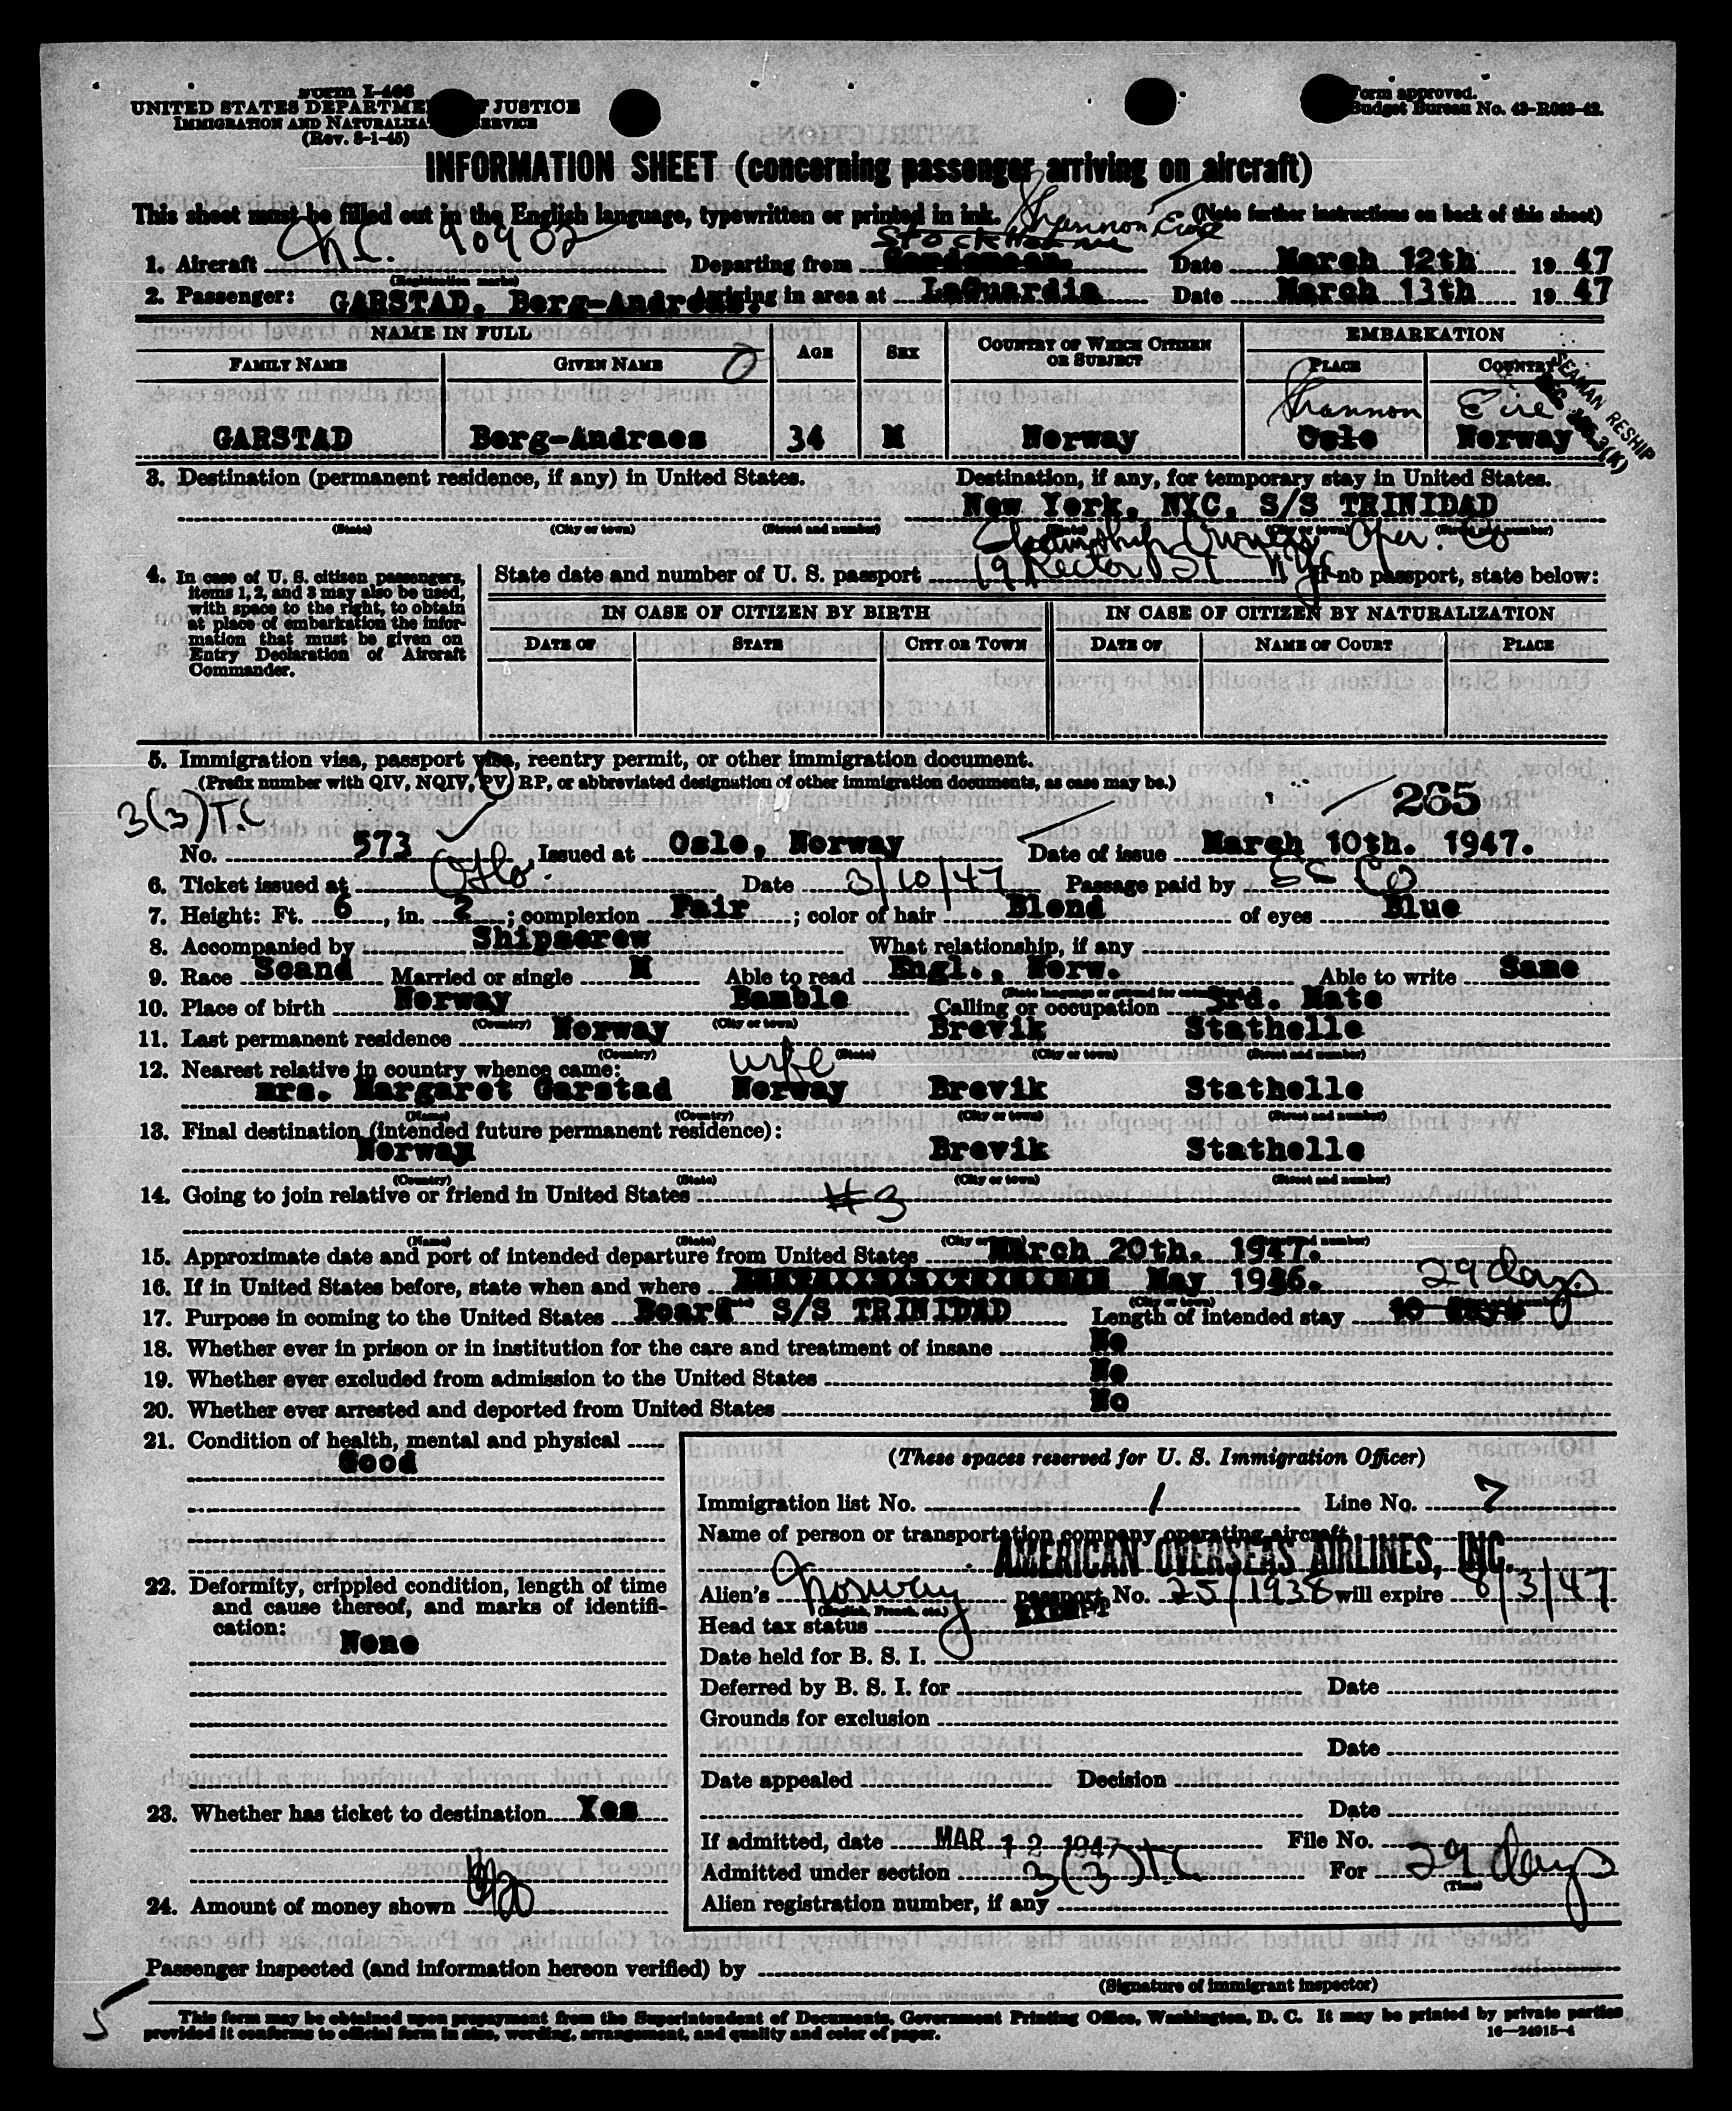 Form I-466
UNITED STATES DEPARTMENT OF JUSTICE
IMMIGRATION AND NATURALIZATION SERVICE
(Rev. 8-1-45)
Form approved.
Budget Bureau No. 43-R083-42.
INFORMATION SHEET (concerning passenger arriving on aircraft)
This sheet must be filled out in the English language, typewritten or printed in ink. (Note further instructions on back of this sheet)
Shannon Eire
Stockholme
1. Aircraft NC. 90902 Departing from Date March 12th 1947
(Registration marks)
2. Passenger: GARSTAD, Berg-Andreas. Arriving in area at LaGuardia Date March 13th 1947
NAME IN FULL AGE SEX COUNTRY OF WHICH CITIZEN OR SUBJECT EMBARKATION
FAMILY NAME GIVEN NAME PLACE COUNTRY
SEAMAN RESHIP
Shannon Eire
GARSTAD Berg-Andraes 34 M Norway Oslo Norway
3. Destination (permanent residence, if any) in United States. Destination, if any, for temporary stay in United States.
New York. NYC. S/S TRINIDAD
(State) (City or town) (Street and number) (State) (City or town) (Street and number)
Steamship Oper. Co
19 Rector St NYC
4. In case of U. S. citizen passengers, items 1, 2, and 3 may also be used, with space to the right, to obtain at place of embarkation the information that must be given on Entry Declaration of Aircraft Commander.
State date and number of U. S. passport If no passport, state below:
IN CASE OF CITIZEN BY BIRTH IN CASE OF CITIZEN BY NATURALIZATION
DATE OF STATE CITY OR TOWN DATE OF NAME OF COURT PLACE
5. Immigration visa, passport visa, reentry permit, or other immigration document.
(Prefix number with QIV, NQIV, PV, RP, or abbreviated designation of other immigration documents, as case may be.)
3(3)T.C 265
No. 573 Issued at Oslo, Norway Date of issue March 10th. 1947.
6. Ticket issued at Oslo. Date 3/10/47 Passage paid by SS Co
7. Height: Ft. 6, in. 2; complexion Fair; color of hair Blond of eyes Blue
8. Accompanied by Shipscrew What relationship, if any
9. Race Scand Married or single M Able to read Engl., Norw. Able to write Same
10. Place of birth Norway Bamble Calling or occupation 3rd. Mate
(Country) (City or town)
11. Last permanent residence Norway Brevik Stathelle
(Country) (State) (City or town) (Street and number)
12. Nearest relative in country whence came: wife
mrs. Margaret Garstad Norway Brevik Stathelle
(Name) (Country) (City or town) (Street and number)
13. Final destination (intended future permanent residence):
Norway Brevik Stathelle
(Country) (State) (City or town) (Street and number)
14. Going to join relative or friend in United States #3
(Name) (State) (City or town) (Street and number)
15. Approximate date and port of intended departure from United States March 20th. 1947.
16. If in United States before, state when and where May 1946. 29 days
17. Purpose in coming to the United States Board S/S TRINIDAD Length of intended stay 10 days
18. Whether ever in prison or in institution for the care and treatment of insane No
19. Whether ever excluded from admission to the United States No
20. Whether ever arrested and deported from United States No
21. Condition of health, mental and physical
Good
22. Deformity, crippled condition, length of time and cause thereof, and marks of identification:
None
23. Whether has ticket to destination Yes
24. Amount of money shown
(These spaces reserved for U. S. Immigration Officer)
Immigration list No. 1 Line No. 7
Name of person or transportation company operating aircraft
AMERICAN OVERSEAS AIRLINES, INC.
Alien's Norway passport No. 25/1938 will expire 8/3/47
(English, French, etc.)
Head tax status EXEMPT
Date held for B. S. I.
Deferred by B. S. I. for Date
Grounds for exclusion
Date
Date appealed Decision
Date
If admitted, date MAR 12 1947 File No.
Admitted under section 3(3)T.C For 29 days
(Time)
Alien registration number, if any
Passenger inspected (and information hereon verified) by
(Signature of immigrant inspector)
5
This form may be obtained upon prepayment from the Superintendent of Documents, Government Printing Office, Washington, D. C. It may be printed by private parties
provided it conforms to official form in size, wording, arrangement, and quality and color of paper.
16—24915-4